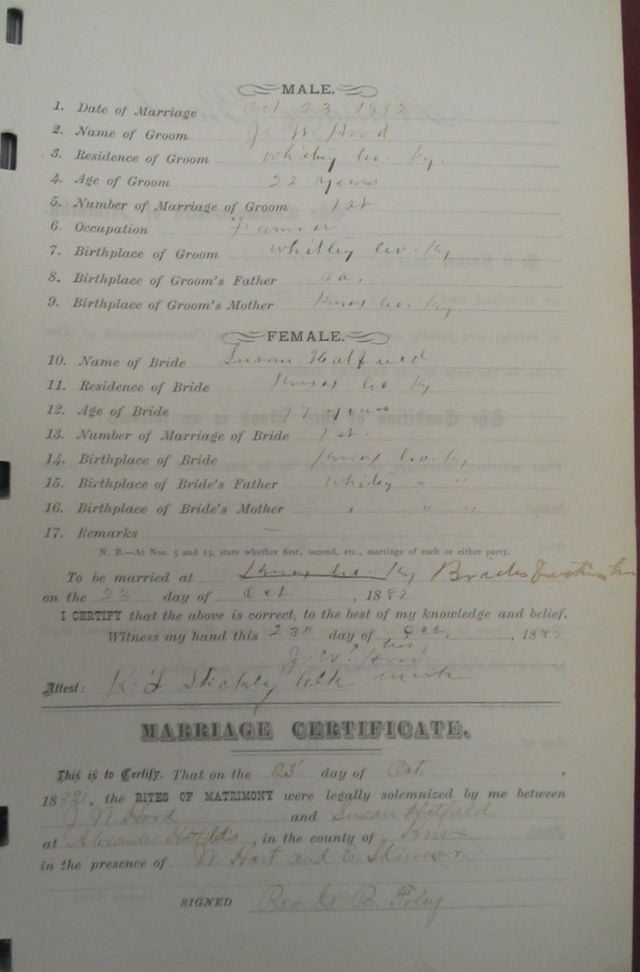 MALE.
1. Date of Marriage Oct 23 1882
2. Name of Groom J. W. Hood
3. Residence of Groom Whitley Co. Ky.
4. Age of Groom 22 years
5. Number of Marriage of Groom 1st
6. Occupation Farmer
7. Birthplace of Groom Whitley Co. Ky
8. Birthplace of Groom's Father
9. Birthplace of Groom's Mother Knox Co. Ky.
FEMALE.
10. Name of Bride Susan Hatfield
11. Residence of Bride Knox Co Ky
12. Age of Bride 17 years
13. Number of Marriage of Bride 1st.
14. Birthplace of Bride Knox Co. Ky
15. Birthplace of Bride's Father Whitley " "
16. Birthplace of Bride's Mother " " "
17. Remarks —
N. B.—At Nos. 5 and 13, state whether first, second, etc., marriage of each or either party.
To be married at Knox Co. Ky Brides
on the 23 day of Oct , 1882
I CERTIFY that the above is correct, to the best of my knowledge and belief.
Witness my hand this 23 day of Oct. , 1882
J. W. x Hood his
Attest: Stickley Clk mark
MARRIAGE CERTIFICATE.
This is to Certify, That on the 25 day of Oct. ,
1882, the RITES OF MATRIMONY were legally solemnized by me between
J. W. Hood and Susan Hatfield
at Alexander Hatfields, in the county of Knox
in the presence of W. Hart and E. Skinner
SIGNED Rev B. Foley